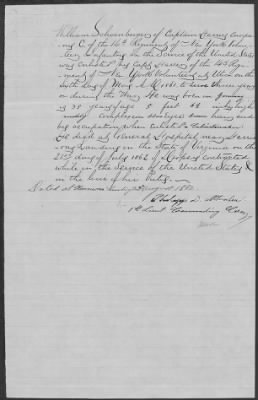 William Schoenburger of Captain Harrer Compa
ny C of the 46th Regiment of New York Volun
teers Infantry in the Service of the United States
was enlisted by Capt Harrer of the 46 Regi
ment of New York Volunteers at Utica on the
day of May A.D. 1861 to serve three years
or during the War. He was born in Germany
is 35 years of age 5 feet inches high
ruddy complexion blue eyes brown hair and
by occupation when enlisted a
He died at General Hospital near Harri
sons Landing in the State of Virginia on the
21st day of July 1862 of disease contracted
while in the Service of the United States &
in the line of his duty.
Dated at August 1862
Philipp D.
1st Lieut Commanding Comp